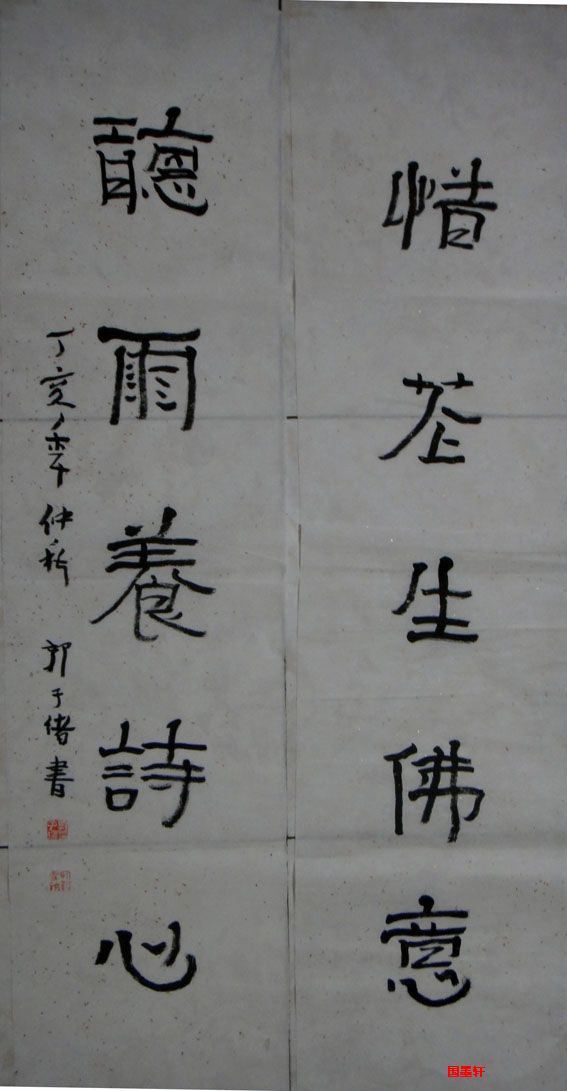 惜花生佛意
聽雨養詩心
丁亥年仲秋 郭于緒書
国墨轩